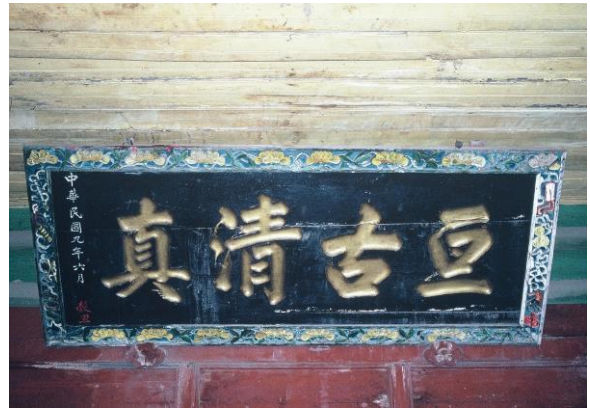 亘古清真
中華民國九年六月